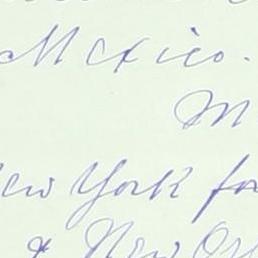 Mexico.
M
New York fo
& New Or